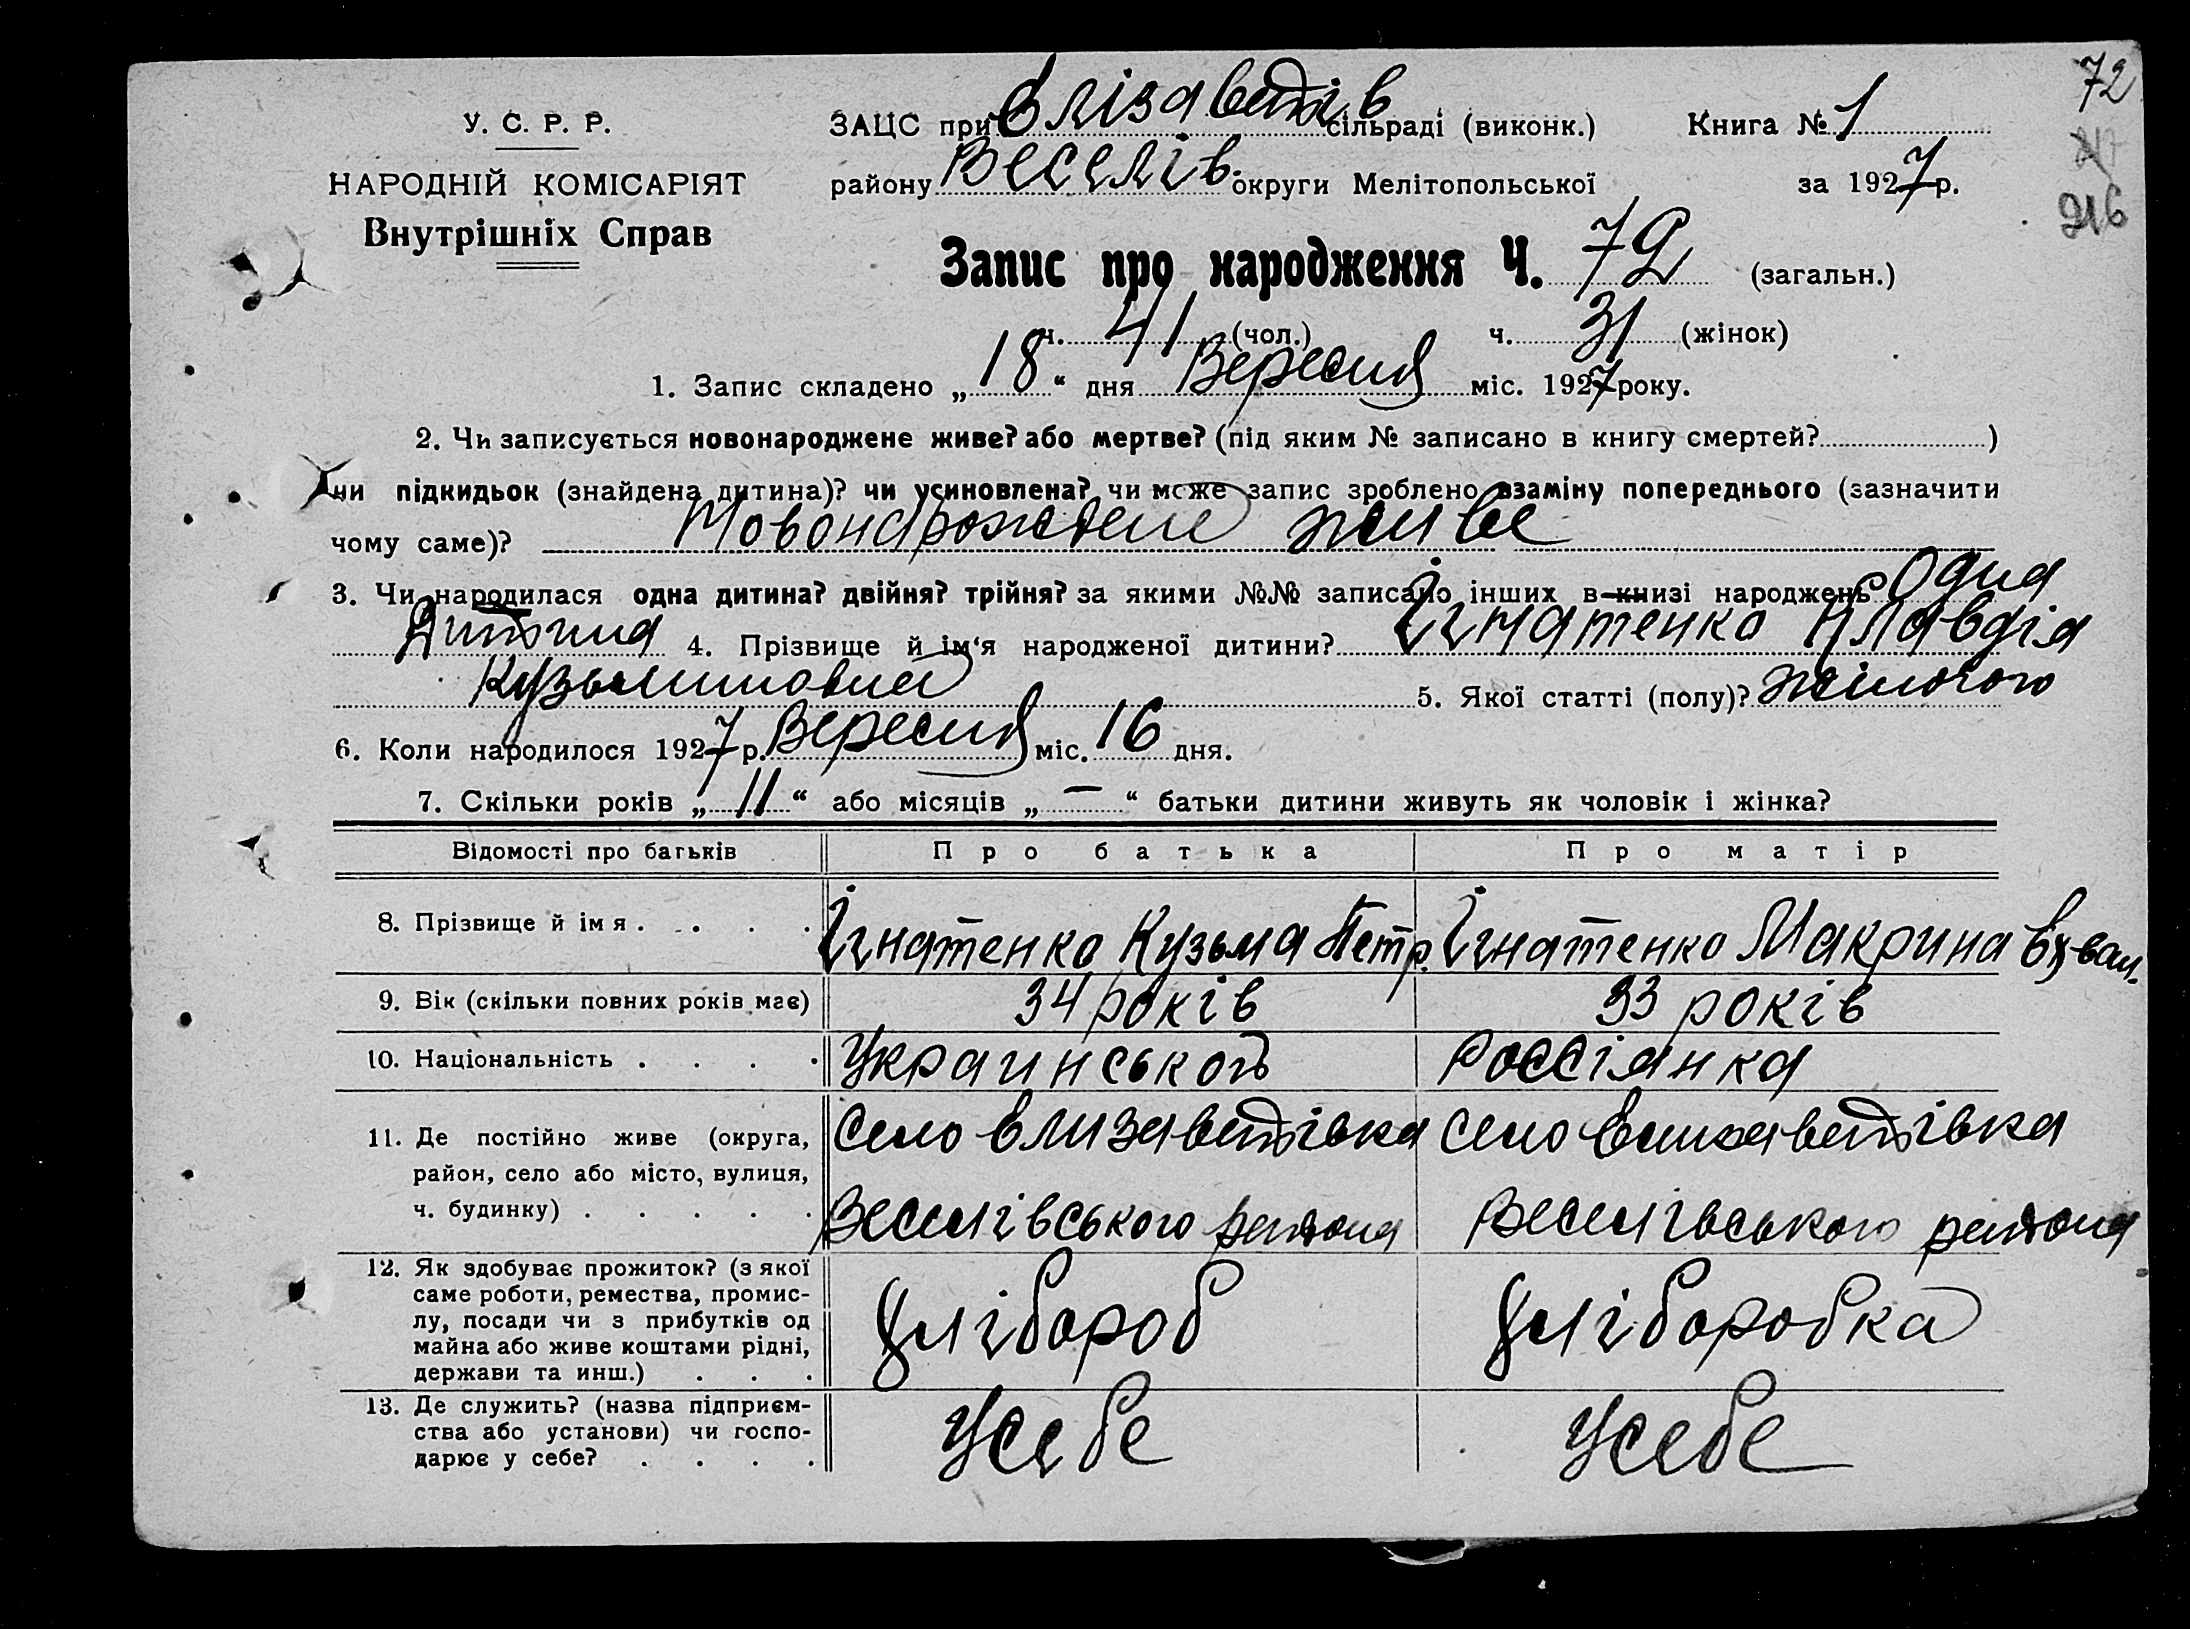 72
У. С. Р. Р.
ЗАЦС при Єлізаветів сільраді (виконк.)
Книга № 1
НАРОДНІЙ КОМІСАРІЯТ
району Веселів. округи Мелітопольської
за 1927 р.
216
Внутрішніх Справ
Запис про народження Ч. 72 (загальн.)
ч. 41 (чол.) ч. 31 (жінок)
1. Запис складено „18“ дня Вересня міс. 1927 року.
2. Чи записується новонароджене живе? або мертве? (під яким № записано в книгу смертей? )
чи підкидьок (знайдена дитина)? чи усиновлена? чи може запис зроблено взаміну попереднього (зазначити
чому саме)? Новонарождене живе
3. Чи народилася одна дитина? двійня? трійня? за якими №№ записано інших в книзі народжень Одна
Дитина 4. Прізвище й ім‘я народженої дитини? Ігнатенко Клавдія
Кузьминовна 5. Якої статті (полу)? жіночого
6. Коли народилося 1927 р. Вересня міс. 16 дня.
7. Скільки років „11“ або місяців „—“ батьки дитини живуть як чоловік і жінка?
Відомості про батьків Про батька Про матір
8. Прізвище й імя . . . . Ігнатенко Кузьма Петр. Ігнатенко Макрина
9. Вік (скільки повних років має) 34 років 33 років
10. Національність . . . . Украинськой Россіянка
11. Де постійно живе (округа, село Єлизаветівка село Єлизаветівка
район, село або місто, вулиця,
ч. будинку) . . . . . Веселівського района Веселівського района
12. Як здобуває прожиток? (з якої
саме роботи, ремества, промис-
лу, посади чи з прибутків од хлібороб хліборобка
майна або живе коштами рідні,
держави та инш.) . . .
13. Де служить? (назва підприєм-
ства або установи) чи госпо- Усебе Усебе
дарює у себе? . . . .